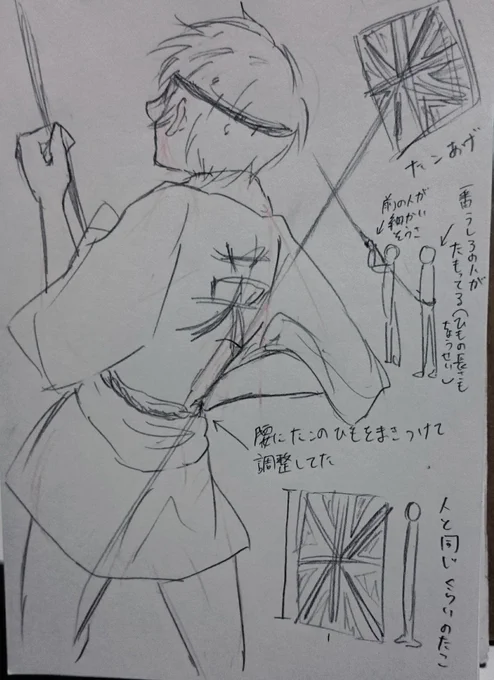 英
たこあげ
前の人が
細かい
そうさ
一番うしろの人が
たもってる(ひもの長さも
ちょうせい)
腰にたこのひもをまきつけて
調整してた
人と同じくらいのたこ